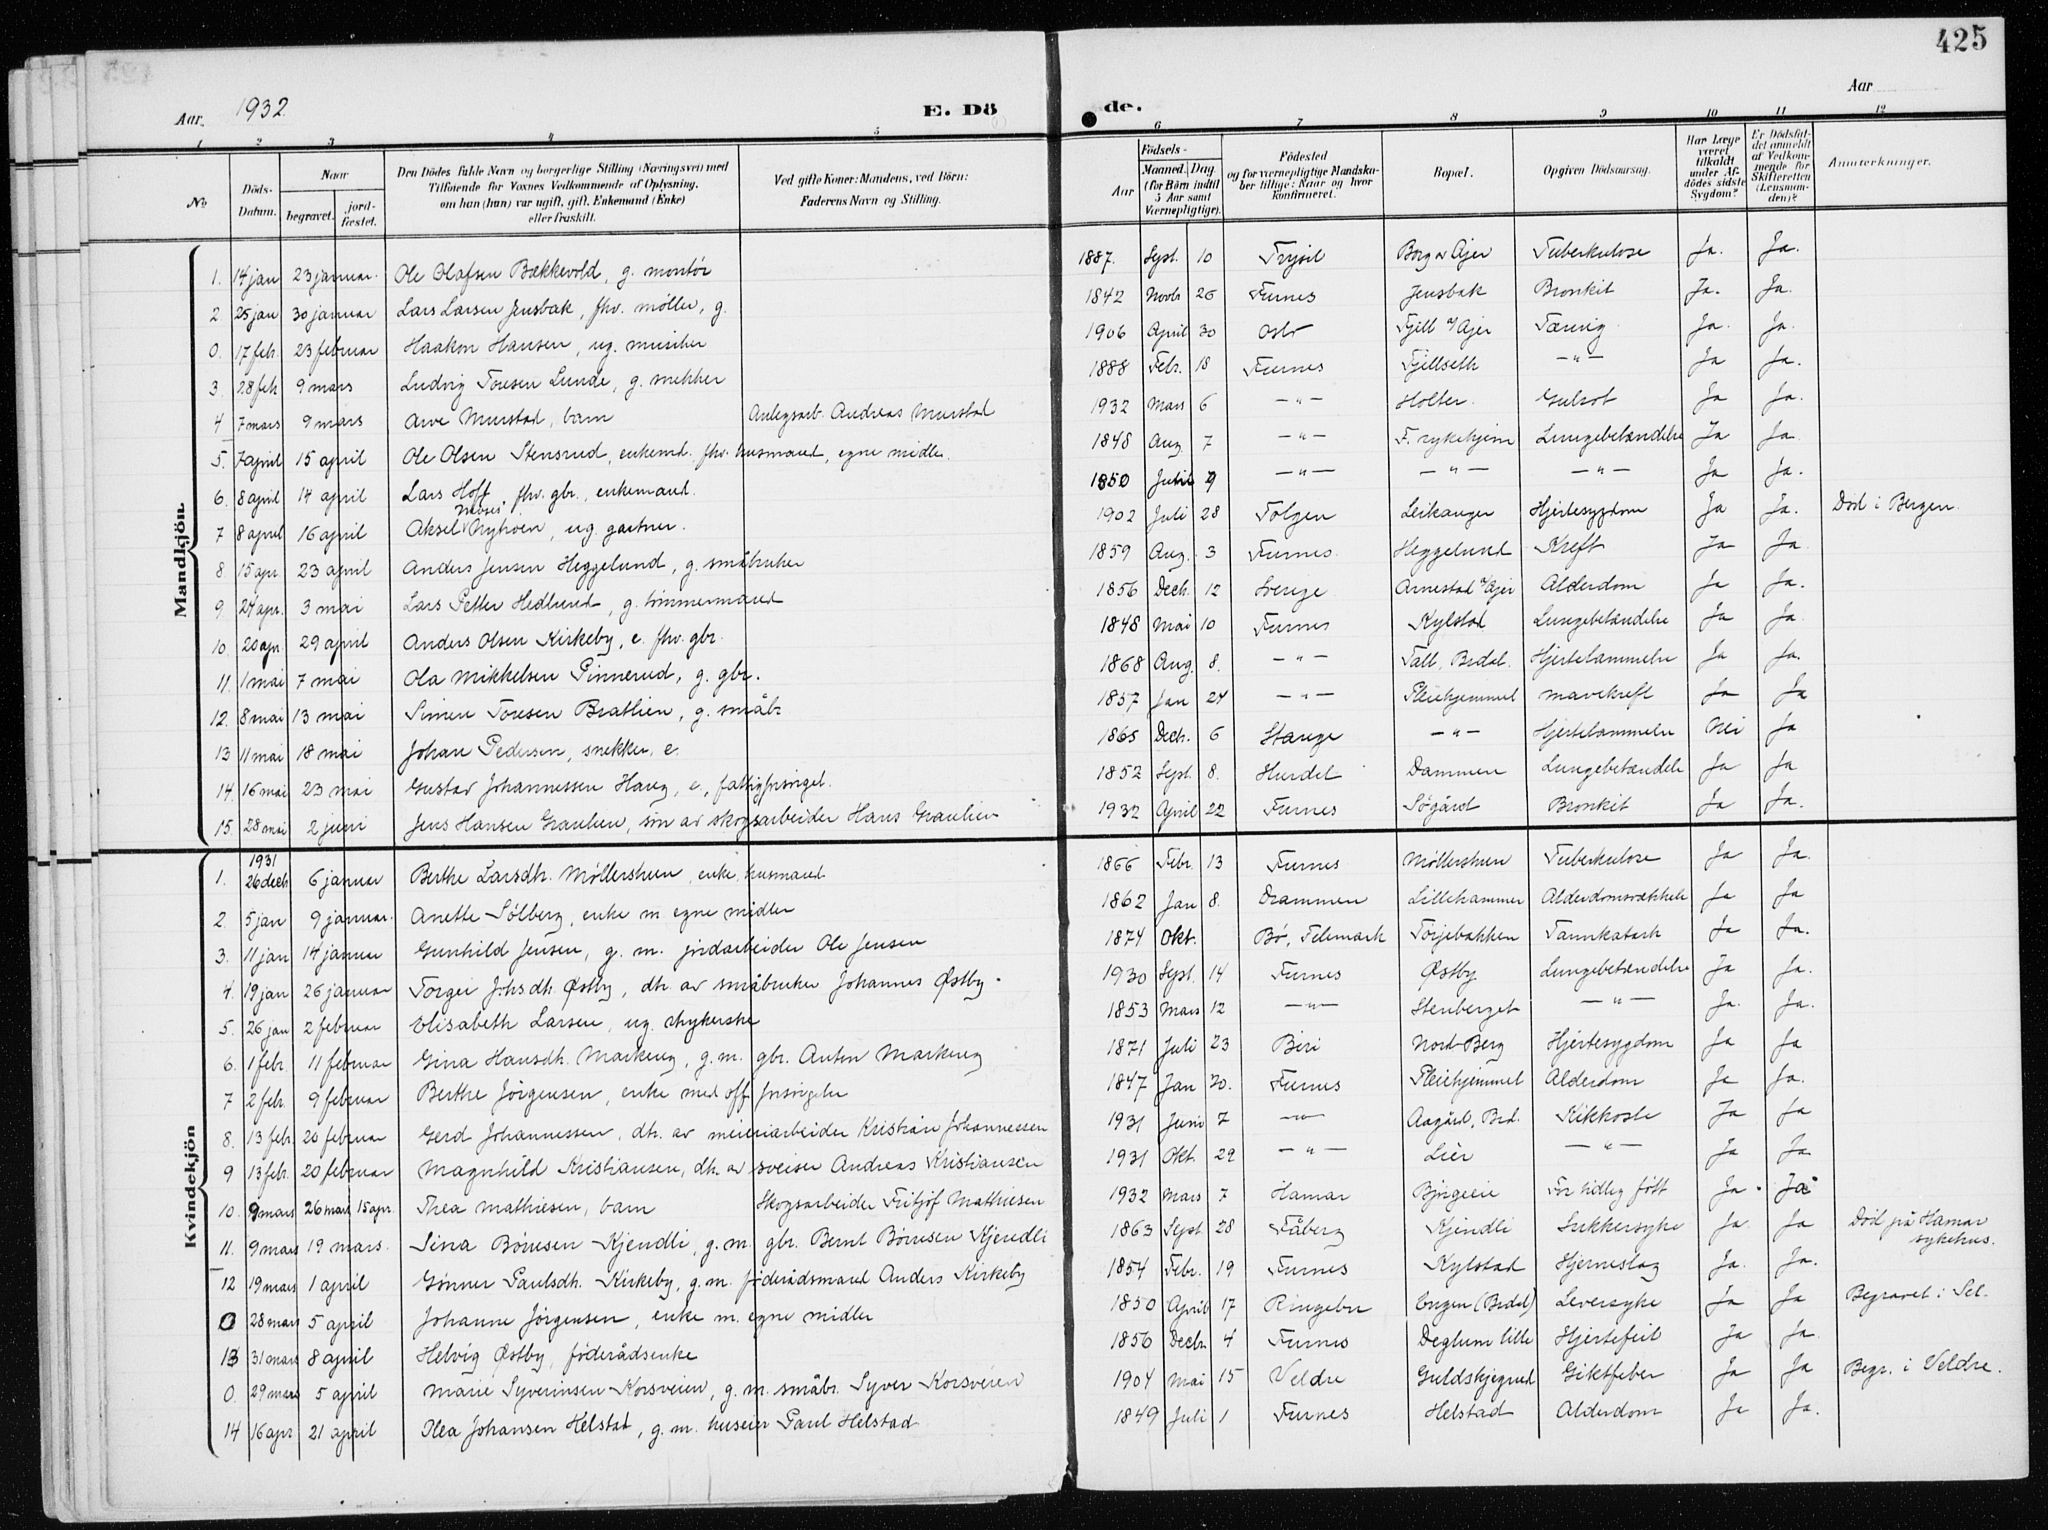 425
Aar 1932.
E. Dö de.
Aar
1 2 3 4 5 6 7 8 9 10 11 12
No.
Döds-Datum.
Naar
begravet.
jord-fæstet.
Den Dödes fulde Navn og borgerlige Stilling (Næringsvei) med
Tilføiende for Voxnes Vedkommende af Oplysning,
om han (hun) var ugift, gift, Enkemand (Enke)
eller fraskilt.
Ved gifte Koner: Mandens, ved Börn:
Faderens Navn og Stilling.
Födsels-
Aar
Maaned. Dag.
(for Börn indtil
5 Aar samt
Værnepligtige).
Födested
og for værnepligtige Mandska-
ber tillige: Naar og hvor
konfirmeret.
Bopæl.
Opgiven Dödsaarsag.
Har Læge
været
tilkaldt
under Af-
dödes sidste
Sygdom?
Er Dödsfal-
det anmeldt
af Vedkom-
mende for
Skifteretten
(Lensman-
den)?
Anmærkninger.
Mandkjön.
1. 14 jan 23 januar. Ole Olafsen Bækkevold, g. montör 1887. Sept. 10 Trysil Borg v Ajer Tuberkulose Ja. Ja.
2 25 jan 30 januar Lars Larsen Jensbak, fhv. møller, g. 1842 Novb 26 Furnes Jensbak Bronkit Ja. Ja.
0. 17 feb. 23 februar Haakon Hansen, ug. musiker 1906 April 30 Oslo Fjell v/ Ajer Tæring Ja. Ja.
3 28 feb 9 mars Ludvig Toresen Lunde, g. snekker 1888 Febr. 18 Furnes Fjellseth — " — Ja Ja.
4 7 mars 9 mars Arve Murstad, barn Anlegsarb. Andreas Murstad 1932 Mars 6 — " — Holter. Gulsot Ja Ja.
5. 7 april 15 april Ole Olsen Stensrud, enkemd. fhv. husmand, egne midler. 1848 Aug 7 — " — F. sykehjem Lungebetændelse Ja Ja.
6. 8 april 14 april Lars Hoff, fhv. gbr., enkemand. 1850 Juli 9 — " — — " — — " — Ja Ja.
7 8 april 16 april Aksel Moses Nyhoen, ug. gartner. 1902 Juli 28 Tolgen Leikanger Hjertesygdom Ja Ja. Død i Bergen.
8 15 apr. 23 april Anders Jensen Heggelund, g. småbruker 1859 Aug. 3 Furnes. Heggelund Kreft Ja Ja.
9 24 apr. 3 mai Lars Petter Hedlund, g. tømmermand 1856 Dech. 12 Sverige Arnestad v/ Ajer Alderdom Ja Ja.
10 20 apr. 29 april Anders Olsen Kirkeby, e. fhv. gbr. 1848 Mai 10 Furnes Kylstad Lungebetændelse Ja Ja.
11. 1 mai 7 mai Ola Mikkelsen Pinnerud, g. gbr. 1868 Aug. 8. — " — Tall. Brdal. Hjertelammelse Ja Ja.
12. 8 mai 13 mai Simen Toresen Bratlien, g. småbr 1857 Jan 24 — " — Pleiehjemmet Mavekreft Ja Ja
13 11 mai 18 mai Johan Pedersen, snekker, e. 1865 Dech. 6 Stange — " — Hjertelammelse Nei Ja
14. 16 mai 23 mai Gustav Johannessen Haug, e., fattigforsørget. 1852 Sept. 8. Hurdal Dammen Lungebetændelse Ja Ja
15. 28 mai 2 juni Jens Hansen Graulien, søn av skogsarbeider Hans Graulien 1932 April 22 Furnes Søgård Bronkit Ja Ja.
Kvindekjön
1. 1931 26 dech. 6 januar Berthe Larsdh. Møllerstuen, enke, husmand 1866 Febr. 13 Furnes Møllerstuen Tuberkulose Ja Ja.
2. 5 jan 9 januar. Anette Sølberg, enke m egne midler 1862 Jan 8. Drammen Lillehammer Alderdomssvækkelse Ja Ja
3. 11 jan 14 januar Gunhild Jensen, g. m. jordarbeider Ole Jensen 1874 Okt. Bø, Telemark Torjebakken Tarmkatarh Ja Ja.
4. 19 jan 26 januar Torgei Johsdh. Østby, dh. av småbruker Johannes Østby. 1930 Sept. 14 Furnes Østby Lungebetændelse Ja Ja.
5. 26 jan 2 februar Elisabeth Larsen, ug. strykerske 1853 Mars 12 — " — Stenberget — " — Ja. Ja.
6. 1 febr. 11 februar Gina Hansdh. Markeng, g. m. gbr. Anton Markeng 1871 Juli 23 Biri Nord-Berg Hjertesygdom Ja Ja
7 2 feb. 9 februar Berthe Jørgensen, enke med off. forsørgelse 1847 Jan 20. Furnes Pleiehjemmet Alderdom Ja Ja.
8. 13 feb. 20 februar Gerd Johannessen, dh. av meieriarbeider Kristian Johannessen 1931 Juni 7 — " — Aagård, Brd. Kikhoste Ja Ja
9 13 feb. 20 februar Magnhild Kristiansen, dh. av sveiser Andreas Kristiansen 1931 Okt 29 — " — Lier — " — Ja Ja
10. 9 mars 26 mars 15 apr. Thea Mathiesen, barn Skogsarbeider Fritjof Mathiesen 1932 Mars 7 Hamar Bjørgeie For tidlig født Ja. Ja.
11. 9 mars 19 mars. Sina Børresen Kjendli, g. m. gbr. Bernt Børresen Kjendli 1863 Sept. 28 Fåberg Kjendli Sukkersyke Ja. Ja Død på Hamar sykehus.
12 19 mars 1 april Gønner Paulsdh. Kirkeby, g. m. føderådsmand Anders Kirkeby 1854 Febr. 19 Furnes Kylstad Hjerneslag Ja. Ja.
0 28 mars 5 april Johanne Jørgensen, enke m. egne midler 1850 April 17 Ringebu Engen (Brdal) Leversyke Ja Ja Begravet i Sel.
13 31 mars 8 april Helvig Østby, føderådsenke 1856 Decbr. 4 Furnes Deglum lille Hjertefeil Ja Ja.
0. 29 mars 5 april Marie Syverinsen Korsveien, g. m. småbr. Syver Korsveien 1904 Mai 15 Veldre Guldskjegrud Giktfeber Ja Ja Begr. i Veldre.
14 16 apr 21 april Olea Johansen Helstad, g. m. huseier Paul Helstad 1849 Juli 1 Furnes Helstad Alderdom Ja Ja.